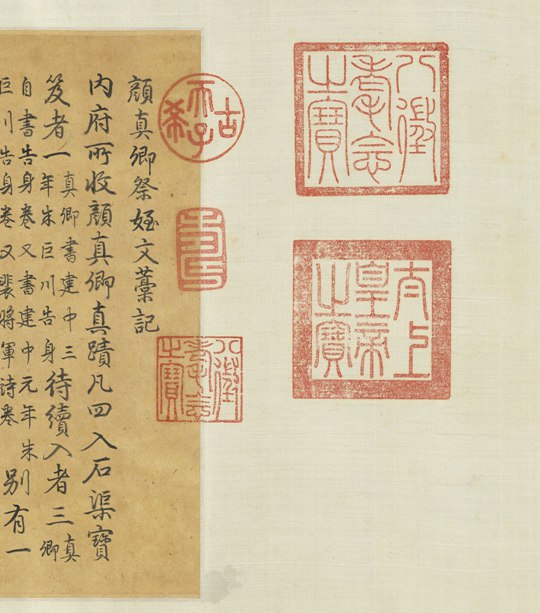 八徵耄念之寶
太上皇帝之寶
古希天子
八徵耄念之寶
顏真卿祭姪文藁記
内府所收顏真卿真蹟凡四入石渠寶
笈者一真卿書建中三年朱巨川告身待續入者三真卿
自書告身卷又書建中元年朱巨川告身卷又裴將軍詩卷別有一